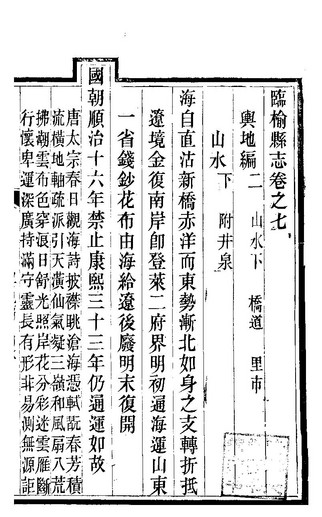 臨榆縣志卷之七
輿地編二 山水下 橋道 里市
山水下 附井泉
海自直沽新橋赤洋而東勢漸北如身之支轉折抵
遼境金復南岸卽登萊二府界明初通海運山東
一省錢鈔花布由海給遼後廢明末復開
國朝順治十六年禁止康熙三十三年仍通運如故
唐太宗春日觀海詩披襟眺滄海憑軾翫春芳積
流橫地軸疏派引天潢仙氣凝三嶺和風扇八荒
拂潮雲布色穿浪日舒光照岸花分彩迷雲雁斷
行懷卑運深廣持滿守靈長有形非易測無源詎